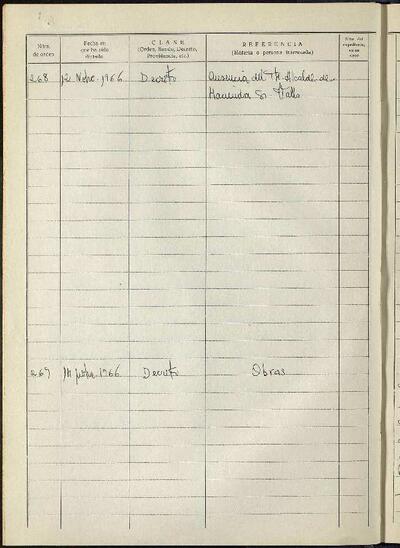 Núm. de orden
Fecha en que ha sido dictada
CLASE
(Orden, Bando, Decreto, Providencia, etc.)
REFERENCIA
(Materia o persona interesada)
Núm. del expediente, en su caso
268 12 Nbre. 1966 Decreto Ausencia del Tte. Alcalde de
Hacienda Sr.
269 1966 Decreto Obras